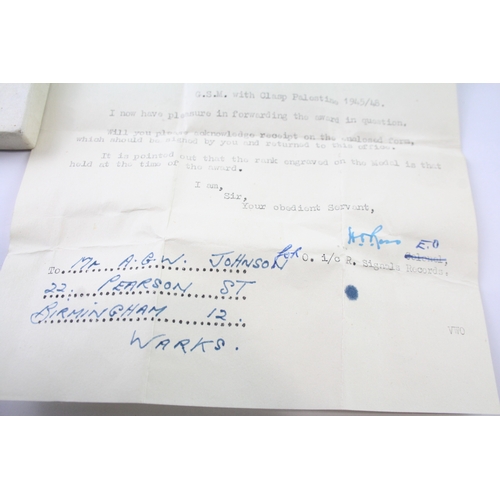 G.S.M. with Clasp Palestine 1945/48.
I now have pleasure in forwarding the award in question.
Will you please acknowledge receipt on the enclosed form,
which should be signed by you and returned to this office.
It is pointed out that the rank engraved on the Medal is that
held at the time of the award.
I am,
Sir,
Your obedient Servant,
E.O
Colonel,
for O. i/c R. Signals Records.
To Mr A.G.W. JOHNSON
22. PEARSON ST
BIRMINGHAM 12.
WARKS.